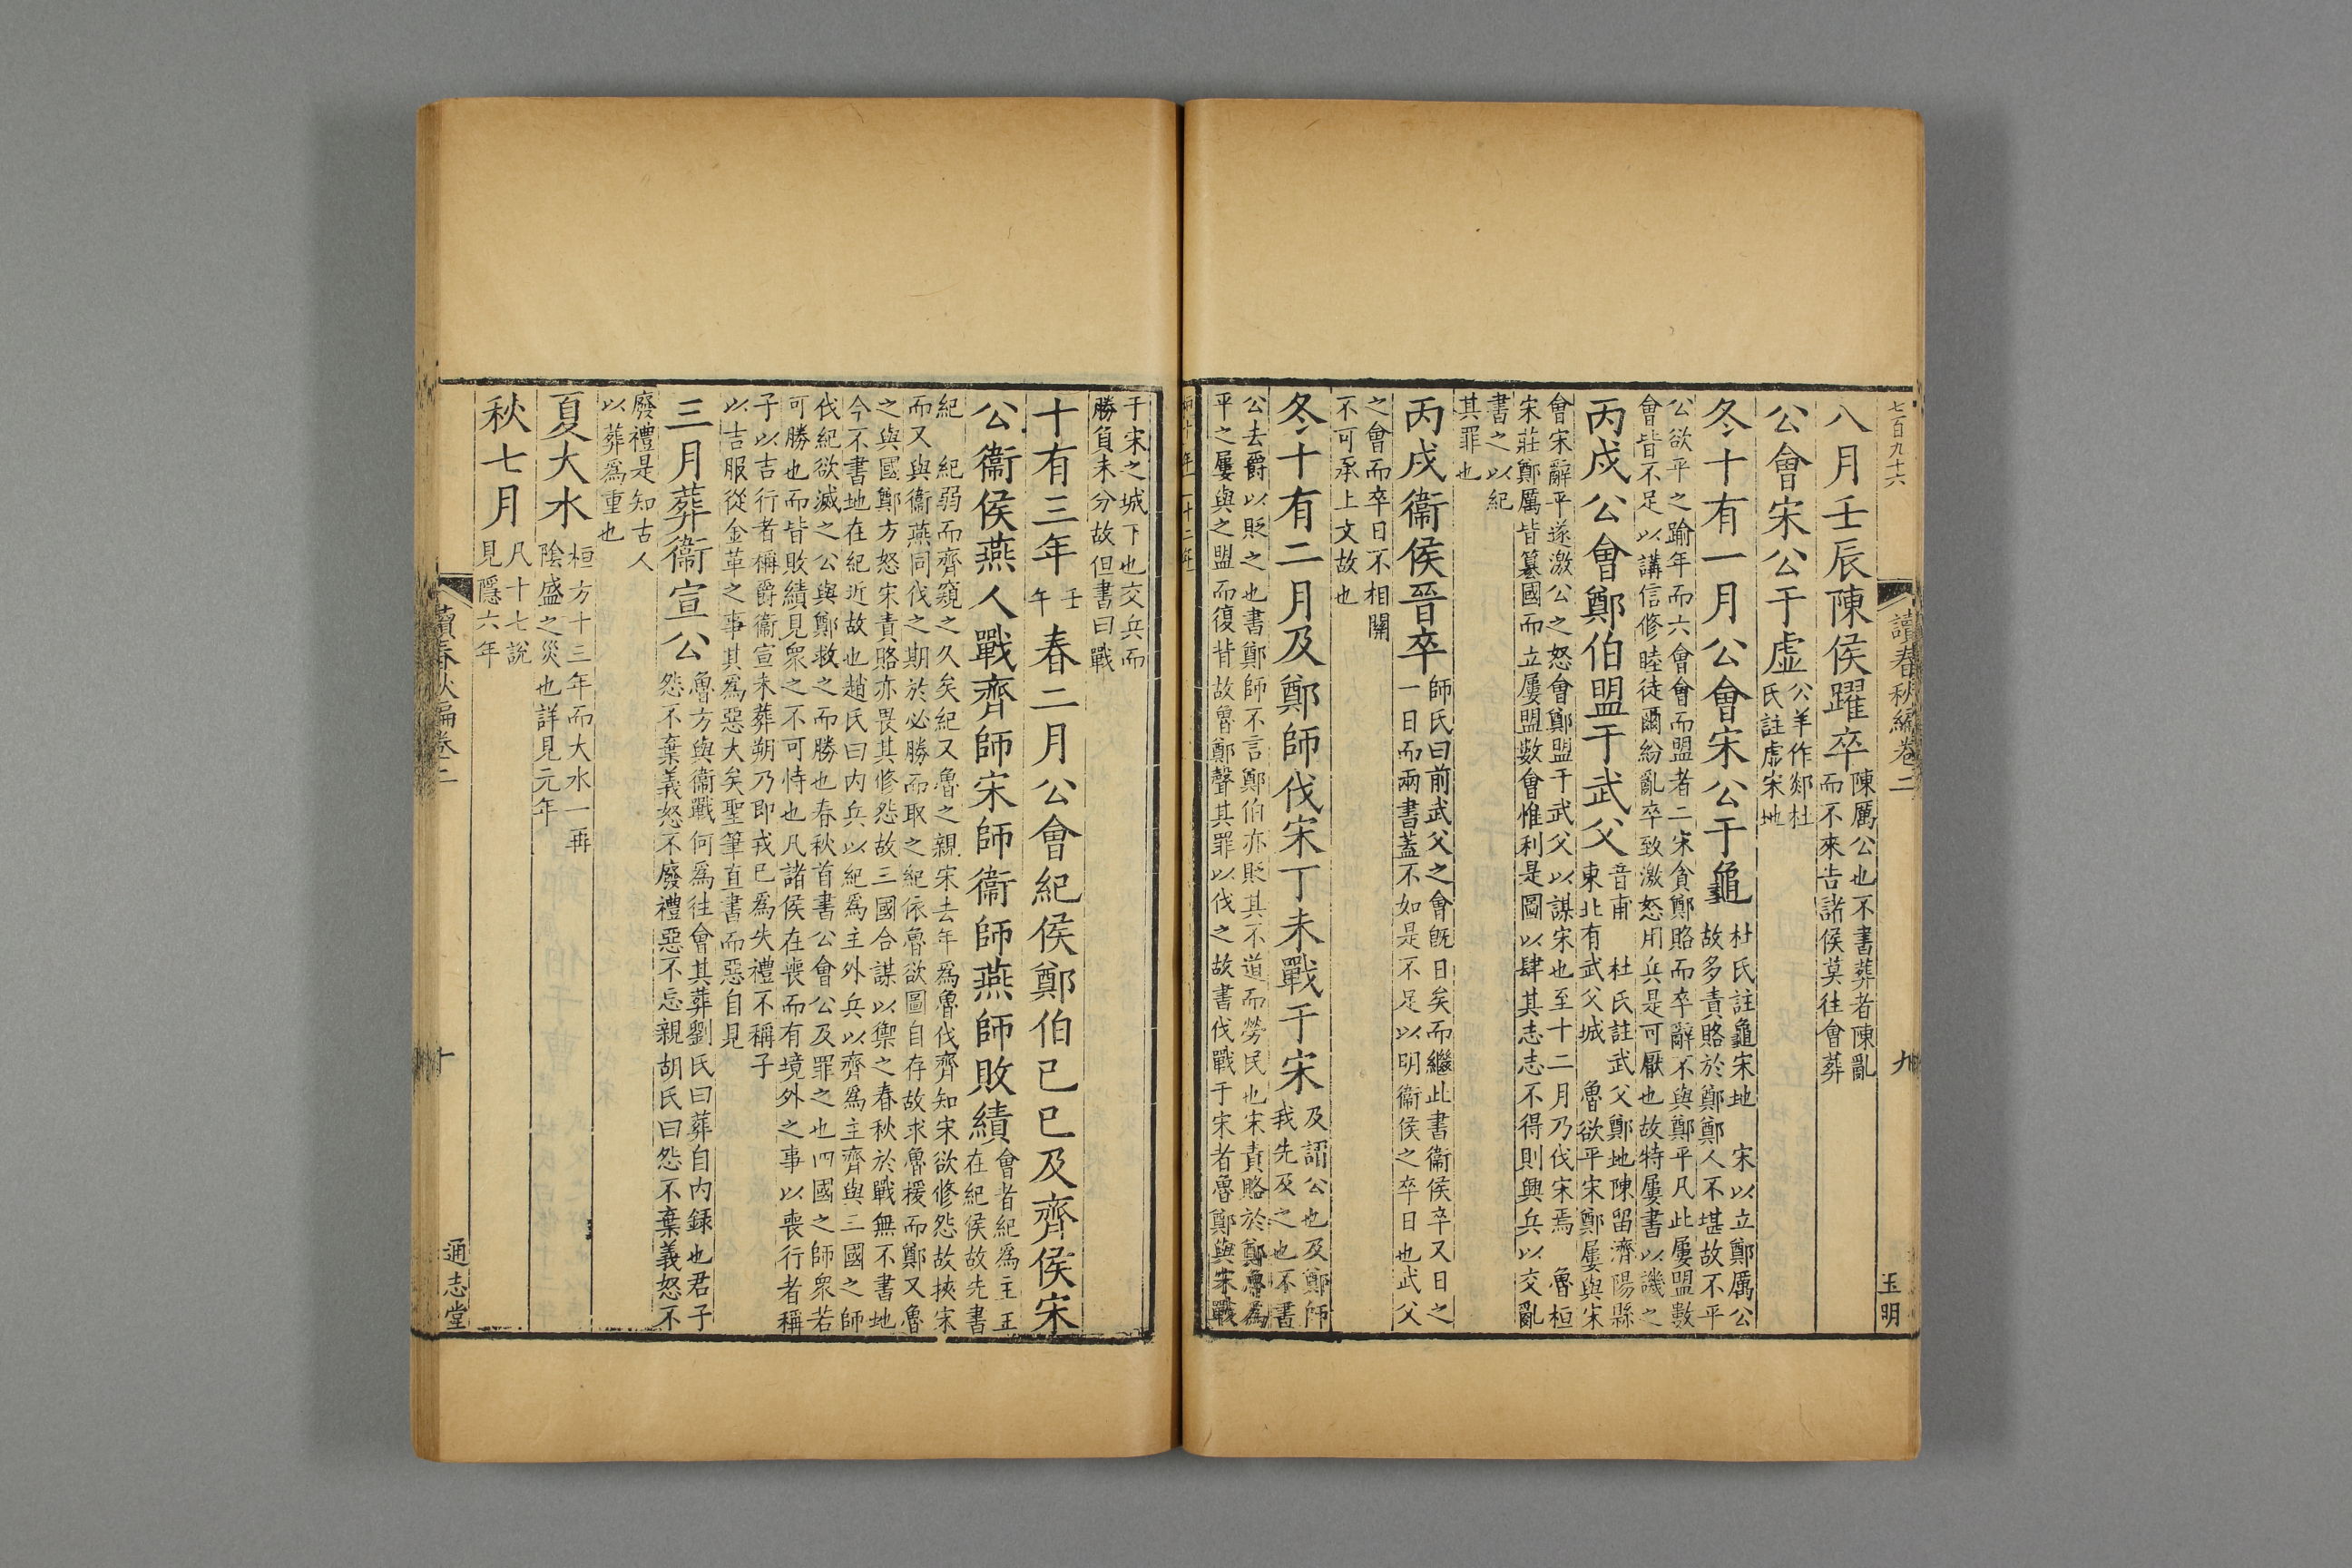 七百九十六
讀春秋編卷二
九
玉明
八月壬辰陳侯躍卒
陳厲公也不書葬者陳亂
而不來告諸侯莫往會葬
公會宋公于虛
公羊作郯杜
氏註虛宋地
冬十有一月公會宋公于龜
杜氏註龜宋地　宋以立鄭厲公
故多責賂於鄭鄭人不堪故不平
公欲平之踰年而六會會而盟者二宋貪鄭賂而卒辭不與鄭平凡此屢盟數
會皆不足以講信修睦徒爾紛亂卒致激怒用兵是可厭也故特屢書以譏之
丙戌公會鄭伯盟于武父
音甫　杜氏註武父鄭地陳留濟陽縣
東北有武父城　魯欲平宋鄭屢與宋
會宋辭平遂激公之怒會鄭盟于武父以謀宋也至十二月乃伐宋焉　魯桓
宋莊鄭厲皆篡國而立屢盟數會惟利是圖以肆其志志不得則興兵以交亂
書之以紀
其罪也
丙戌衞侯晉卒
師氏曰前武父之會既日矣而繼此書衞侯卒又日之
一日而兩書蓋不如是不足以明衞侯之卒日也武父
之會而卒日不相關
不可承上文故也
冬十有二月及鄭師伐宋丁未戰于宋
及謂公也及鄭師
我先及之也不書
公去爵以貶之也書鄭師不言鄭伯亦貶其不道而勞民也宋責賂於鄭魯爲
平之屢與之盟而復背故魯鄭聲其罪以伐之故書伐戰于宋者魯鄭與宋戰
于宋之城下也交兵而
勝負未分故但書曰戰
十有三年
壬
午
春二月公會紀侯鄭伯己巳及齊侯宋
公衞侯燕人戰齊師宋師衞師燕師敗績
會者紀爲主主
在紀侯故先書
紀　紀弱而齊窺之久矣紀又魯之親宋去年爲魯伐齊知宋欲修怨故挾宋
而又與衞燕同伐之期於必勝而取之紀依魯欲圖自存故求魯援而鄭又魯
之與國鄭方怒宋責賂亦畏其修怨故三國合謀以禦之春秋於戰無不書地
今不書地在紀近故也趙氏曰内兵以紀爲主外兵以齊爲主齊與三國之師
伐紀欲滅之公與鄭救之而勝也春秋首書公會公及罪之也四國之師衆若
可勝也而皆敗績見衆之不可恃也凡諸侯在喪而有境外之事以喪行者稱
子以吉行者稱爵衞宣未葬朔乃即戎已爲失禮不稱子
以吉服從金革之事其爲惡大矣聖筆直書而惡自見
三月葬衞宣公
魯方與衞戰何爲往會其葬劉氏曰葬自内録也君子
怨不棄義怒不廢禮惡不忘親胡氏曰怨不棄義怒不
廢禮是知古人
以葬爲重也
夏大水
桓方十三年而大水一再
陰盛之災也詳見元年
秋七月
凡十七說
見隱六年
讀春秋編卷二
十
通志堂